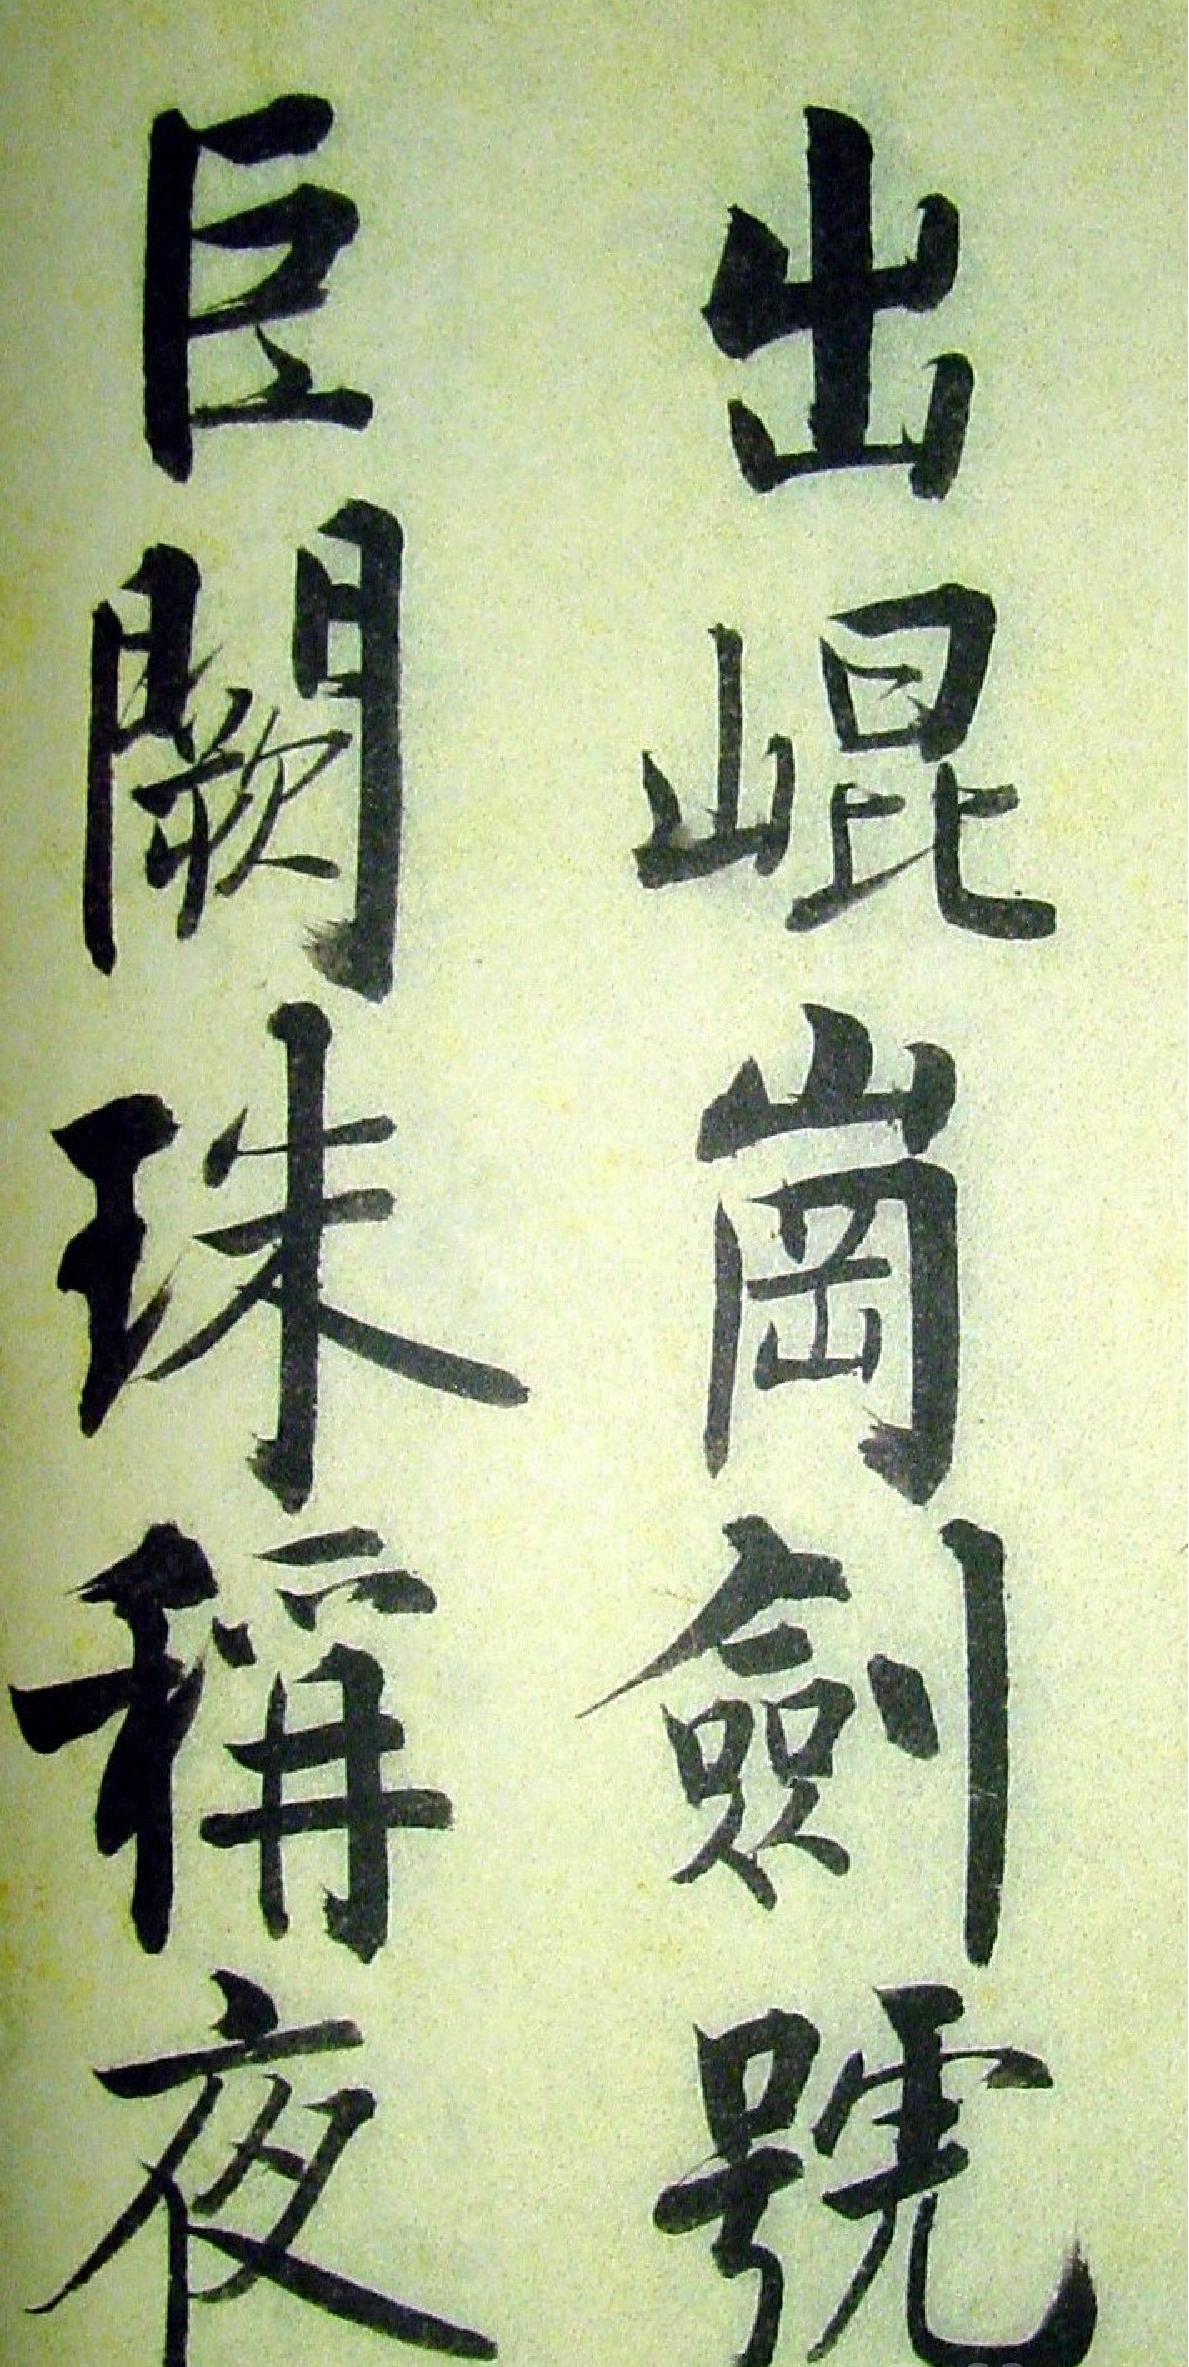 出崐崗劍號
巨闕珠稱夜